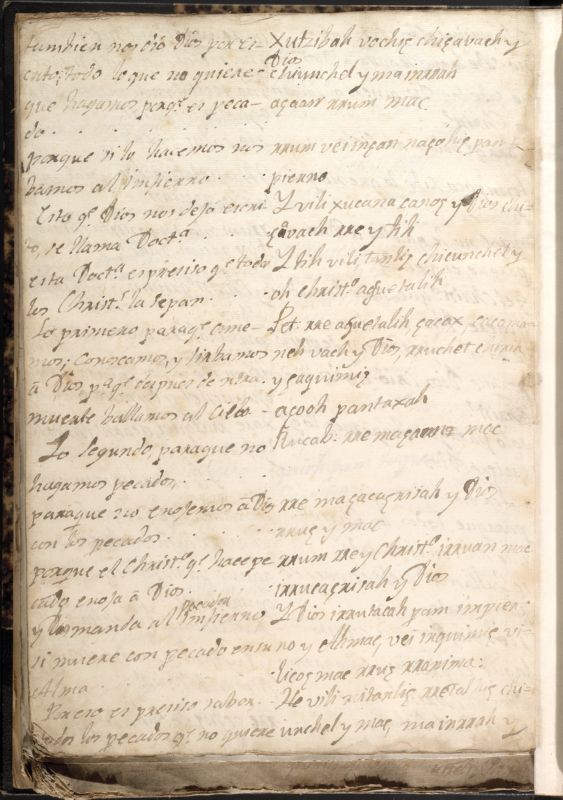 tambien nos dió Dios por es- Xutzibah vochiç chiçavach y
crito, todo lo que no quiere- Dios chiunchel y ma inrrah
que hagamos porq.e es peca- açaan rrum mac
do.
porque si lo hacemos nos rrum vei inçan naçohiç pan
bamos al Imfierno. pierno
Esto q.e Dios nos dejó escri Y vili xucana canoç y Dios chi-
to, se llama Doct.a çavach rre y tih
esta Doct.a es preciso q.e todo Y tih vili chicunchel y
los Christ.s la sepan. oh Christ.o aquetalih
Lo primero paraq.e ame- Pet rre aquetalih çacax
mos, Conoscamos, y sirbamos neh vach y Dios, rruchet
â Dios p.a q.e despues de nrâ. y çaquimiç
muerte ballamos al Cielo - açooh pantaxah
Lo Segundo, paraque no Rucab: rre maçaan mac
hagamos pecados,
paraque no enojemos â Dios rre maçacaçrisah y Dios
con los pecados. rruç y mac
porque el Christ.o q.e hace pe rrum rre y Christ.o irruan mac
cado enoja â Dios. irrucaçrisah y Dios
y Dios manda al pecador Imfierno Y Dios irrutacah pam impier-
si muere con pecado en su no y ellimac, vei inquimiç vi-
Alma. hcoç mac rruç rranima:
Preciso es saber. He vili rretal
todos los pecados q.e no quiere iunchel y mac, ma inrrah y